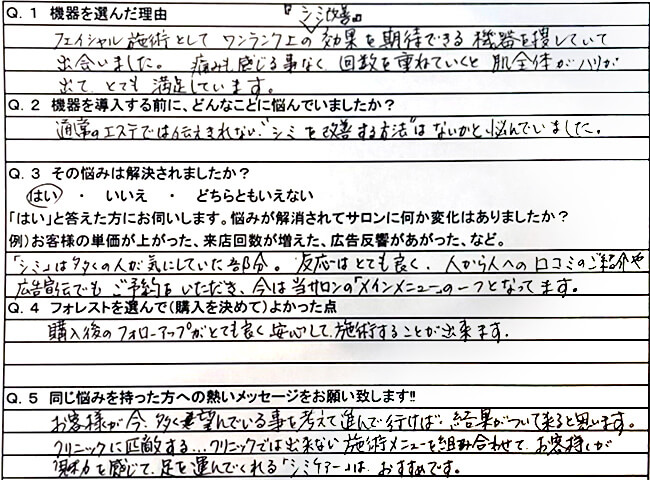 Q. 1 機器を選んだ理由
『シミ改善』
フェイシャル施術として ワンランク上の 効果を期待できる機器を捜していて
出会いました。 痛みも感じる事なく 回数を重ねていくと 肌全体がハリが
出て、とても 満足しています。
Q. 2 機器を導入する前に、どんなことに悩んでいましたか?
通常のエステでは伝えきれない"シミを改善する方法"はないかと悩んでいました。
Q. 3 その悩みは解決されましたか?
はい ・ いいえ ・ どちらともいえない
「はい」と答えた方にお伺いします。悩みが解消されてサロンに何か変化はありましたか?
例)お客様の単価が上がった、来店回数が増えた、広告反響があがった、など。
「シミ」は多くの人が気にしていた部分。 反応はとても良く、人から人への 口コミのご紹介や
広告宣伝でも ご予約をいただき、今は当サロンの「メインメニュー」の一つとなってます。
Q. 4 フォレストを選んで(購入を決めて)よかった点
購入後のフォローアップがとても良く 安心して、施術することが出来ます。
Q. 5 同じ悩みを持った方への熱いメッセージをお願い致します!!
お客様が今、多く希望んでいる事を考えて進んで行けば、結果がついて来ると思います。
クリニックに匹敵する…クリニックでは出来ない施術メニューを組み合わせて、お客様が
魅力を感じて、足を運んでくれる「シミケアー」は、おすすめです。